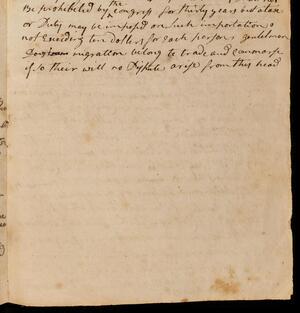 Be prohibited by the Congress for thirty years but a tax
or Duty may be imposed on such importation
not Exceding ten dollers for each person gentelmen
migration belong to trade and commerse
if so their will no Dispute arise from this head